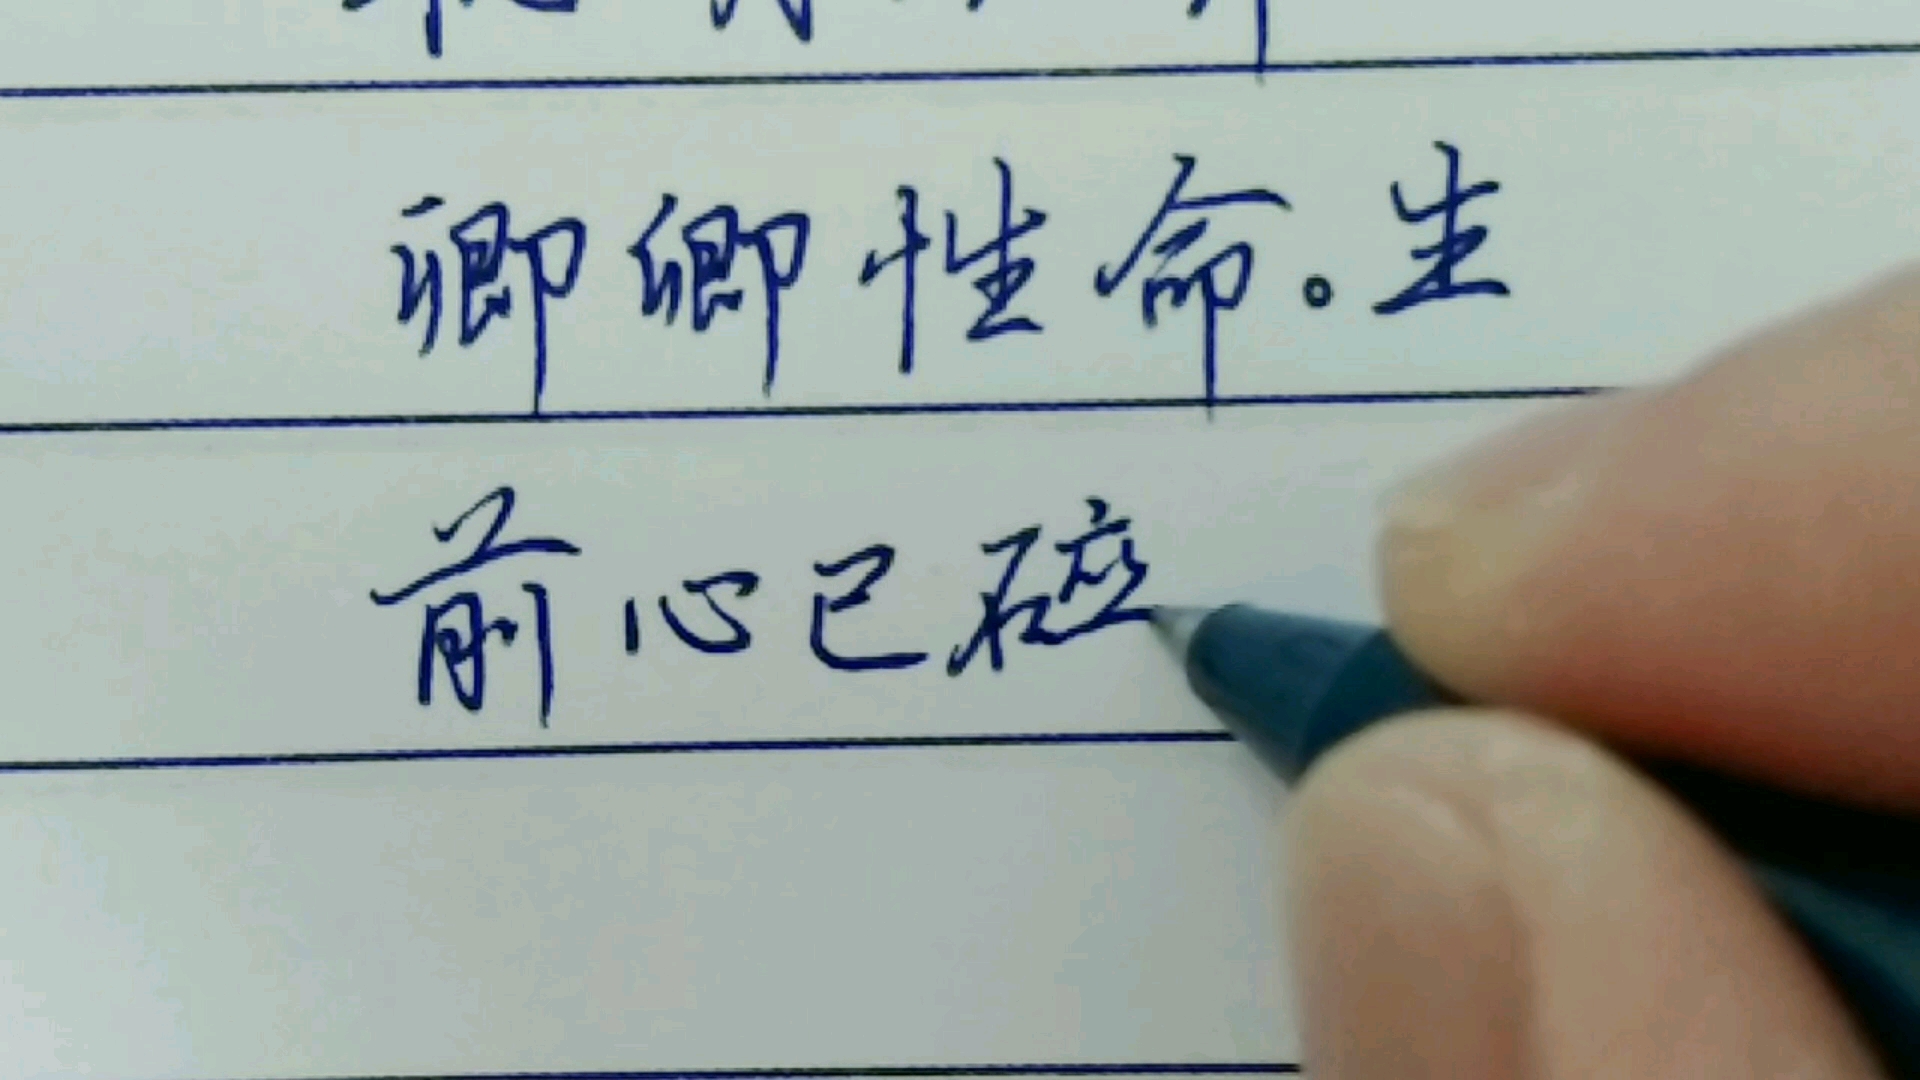 卿卿性命。生
前心已碎